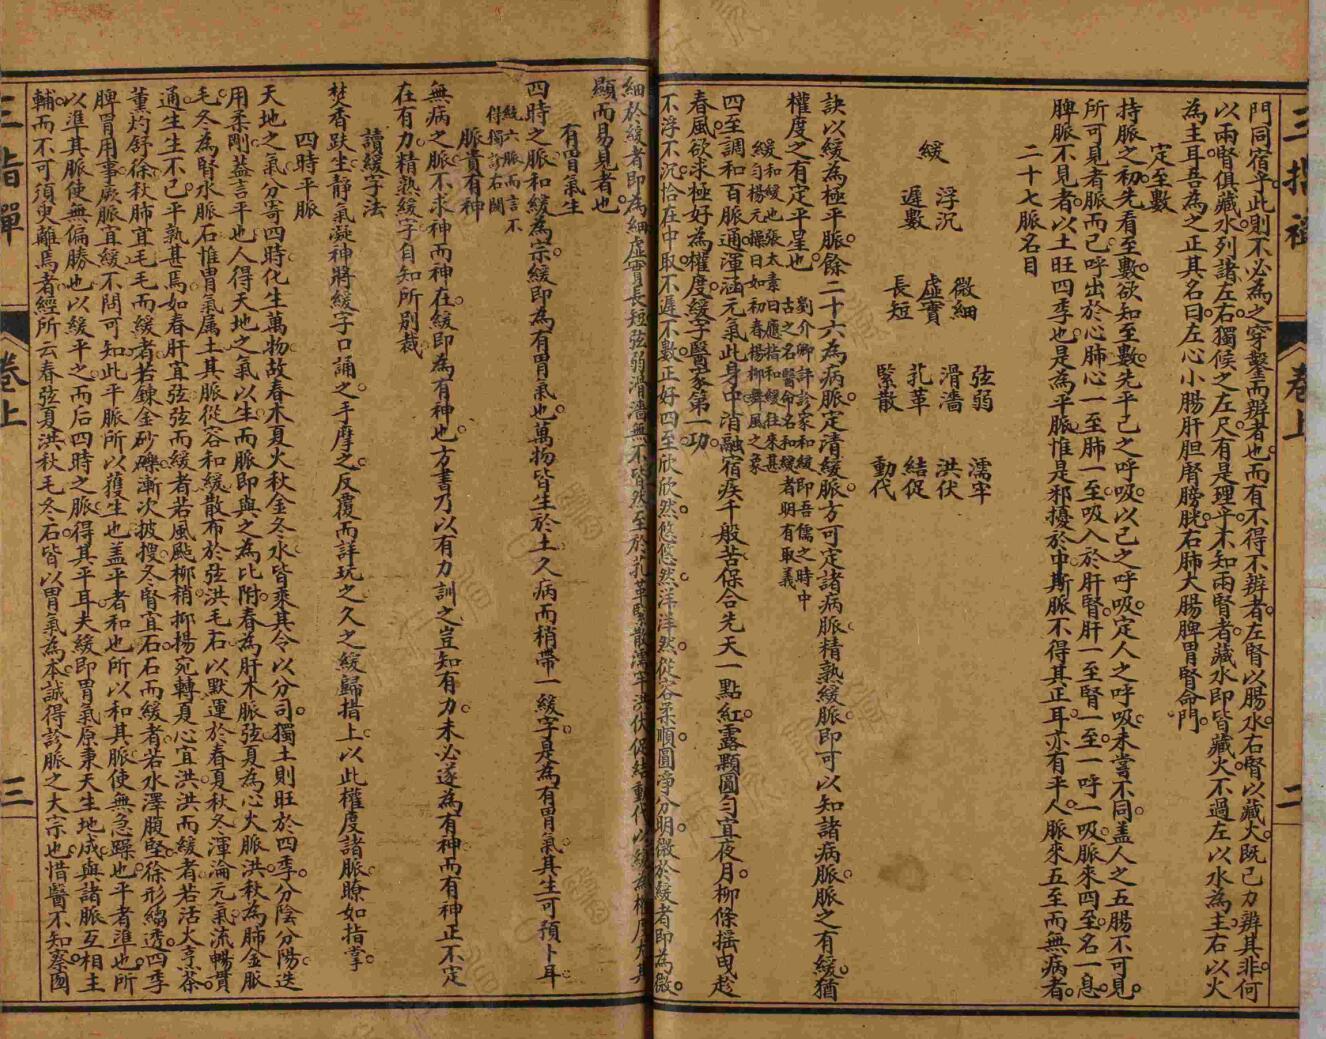 三指禪
卷上
二
門同宿乎此則不必為之穿鑿而辨者也而有不得不辨者左腎以腸水右腎以藏火既已力辨其非何
以兩腎俱藏水列諸左右獨候之左尺有是理乎不知兩腎者藏水即皆藏火不過左以水為主右以火
為主耳吾為之正其名曰左心小腸肝胆腎膀胱右肺大腸脾胃腎命門
定至數
持脈之初先看至數欲知至數先平己之呼吸以己之呼吸定人之呼吸未嘗不同盖人之五腸不可見
所可見者脈而已呼出於心肺心一至肺一至吸入於肝腎肝一至腎一至一呼一吸脈來四至名一息
脾脈不見者以土旺四季也是為平脈惟是邪擾於中斯脈不得其正耳亦有平人脈來五至而無病者
二十七脈名目
緩
浮沉 遲數
微細 虛實 長短
弦弱 滑濇 芤革 緊散
濡牢 洪伏 結促 動代
訣以緩為極平脈餘二十六為病脈定清緩脈方可定諸病脈精熟緩脈即可以知諸病脈脈之有緩猶
權度之有定平星也
劉介卿評診家和緩即吾儒之時中
古之名醫命名和緩者明有取義
緩和緩也張太素曰應指和緩往來甚
緩勻楊元操曰如初春楊柳舞風之象
四至調和百脈通渾涵元氣此身中消融宿疾千般苦保合先天一點紅露顆圓勻宜夜月柳條搖曳趁
春風欲求極好為權度緩字醫家第一功
不浮不沉恰在中取不遲不數正好四至欣欣然悠悠然洋洋然從容柔順圓淨分明微於緩者即為微
細於緩者即為細虛實長短弦弱滑濇無不皆然至於芤革緊散濡牢洪伏促結動代以緩為權度尤其
顯而易見者也
有胃氣生
四時之脈和緩為宗緩即為有胃氣也萬物皆生於土久病而稍帶一緩字是為有胃氣其生可預卜耳
緩六脈而言不
得獨診右關
脈貴有神
無病之脈不求神而神在緩即為有神也方書乃以有力訓之豈知有力未必遂為有神而有神正不定
在有力精熟緩字自知所別裁
讀緩字法
焚香趺坐靜氣凝神將緩字口誦之手摩之反覆而詳玩之久之緩歸指上以此權度諸脈瞭如指掌
四時平脈
天地之氣分寄四時化生萬物故春木夏火秋金冬水皆乘其令以分司獨土則旺於四季分陰分陽迭
用柔剛蓋言平也人得天地之氣以生而脈即與之為比附春為肝木脈弦夏為心火脈洪秋為肺金脈
毛冬為腎水脈石惟胃氣属土其脈從容和緩散布於弦洪毛石以默運於春夏秋冬渾淪元氣流暢貫
通生生不已平孰甚焉如春肝宜弦弦而緩者若風颭柳梢抑揚宛轉夏心宜洪洪而緩者若活火烹茶
薰灼舒徐秋肺宜毛毛而緩者若鍊金砂礫漸次披搜冬腎宜石石而緩者若水澤腹堅徐形縐透四季
脾胃用事厥脈宜緩不問可知此平脈所以獲生也盖平者和也所以和其脈使無急躁也平者準也所
以準其脈使無偏勝也以緩平之而后四時之脈得其平耳夫緩即胃氣原秉天生地成與諸脈互相主
輔而不可須臾離焉者經所云春弦夏洪秋毛冬石皆以胃氣為本誠得診脈之大宗也惜醫不知察囡
三指禪
卷上
三